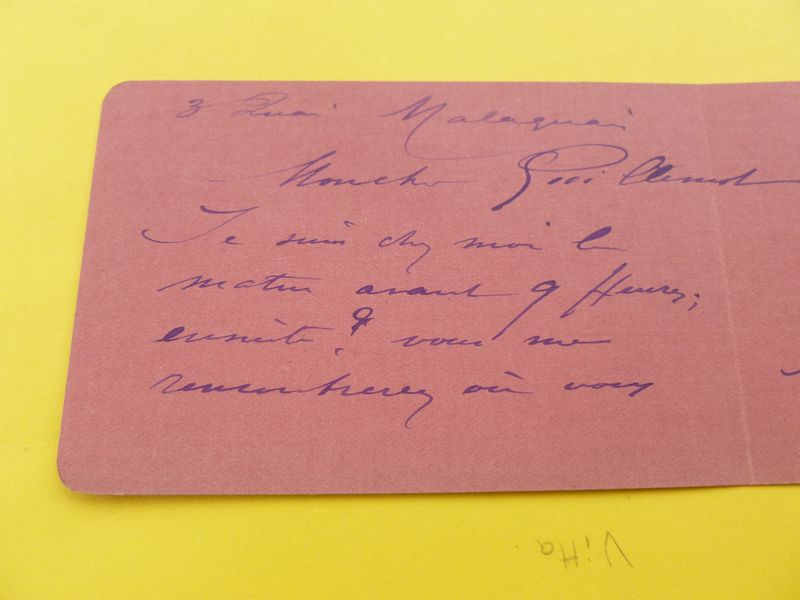 3 Quai Malaquais
Mon cher Guillemot
Je suis chez moi le
matin avant 9 Heures;
ensuite, vous me
rencontrerez où vous
Vitta